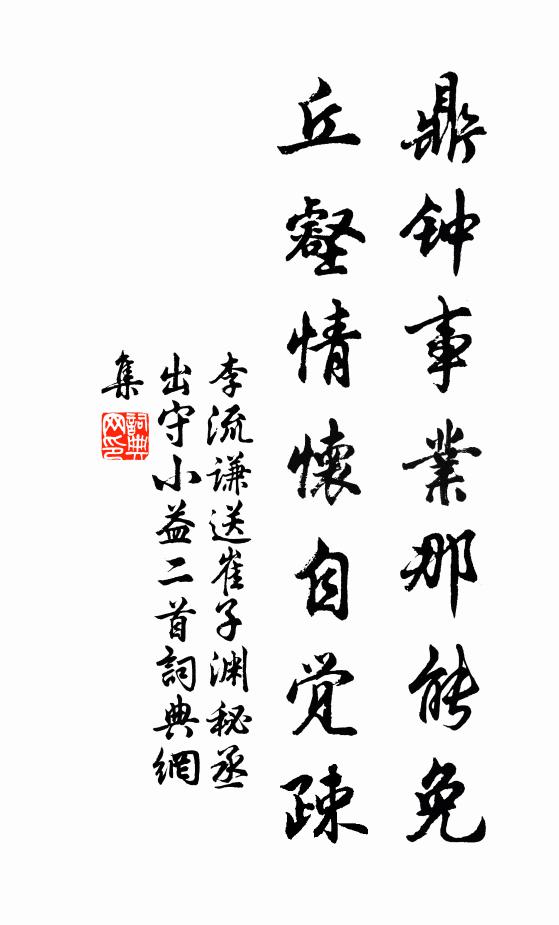 鼎钟事業那能免
丘壑情懷自觉疎
李流謙送崔子渊秘丞
出守小益二首詞典網
集
詞典网印